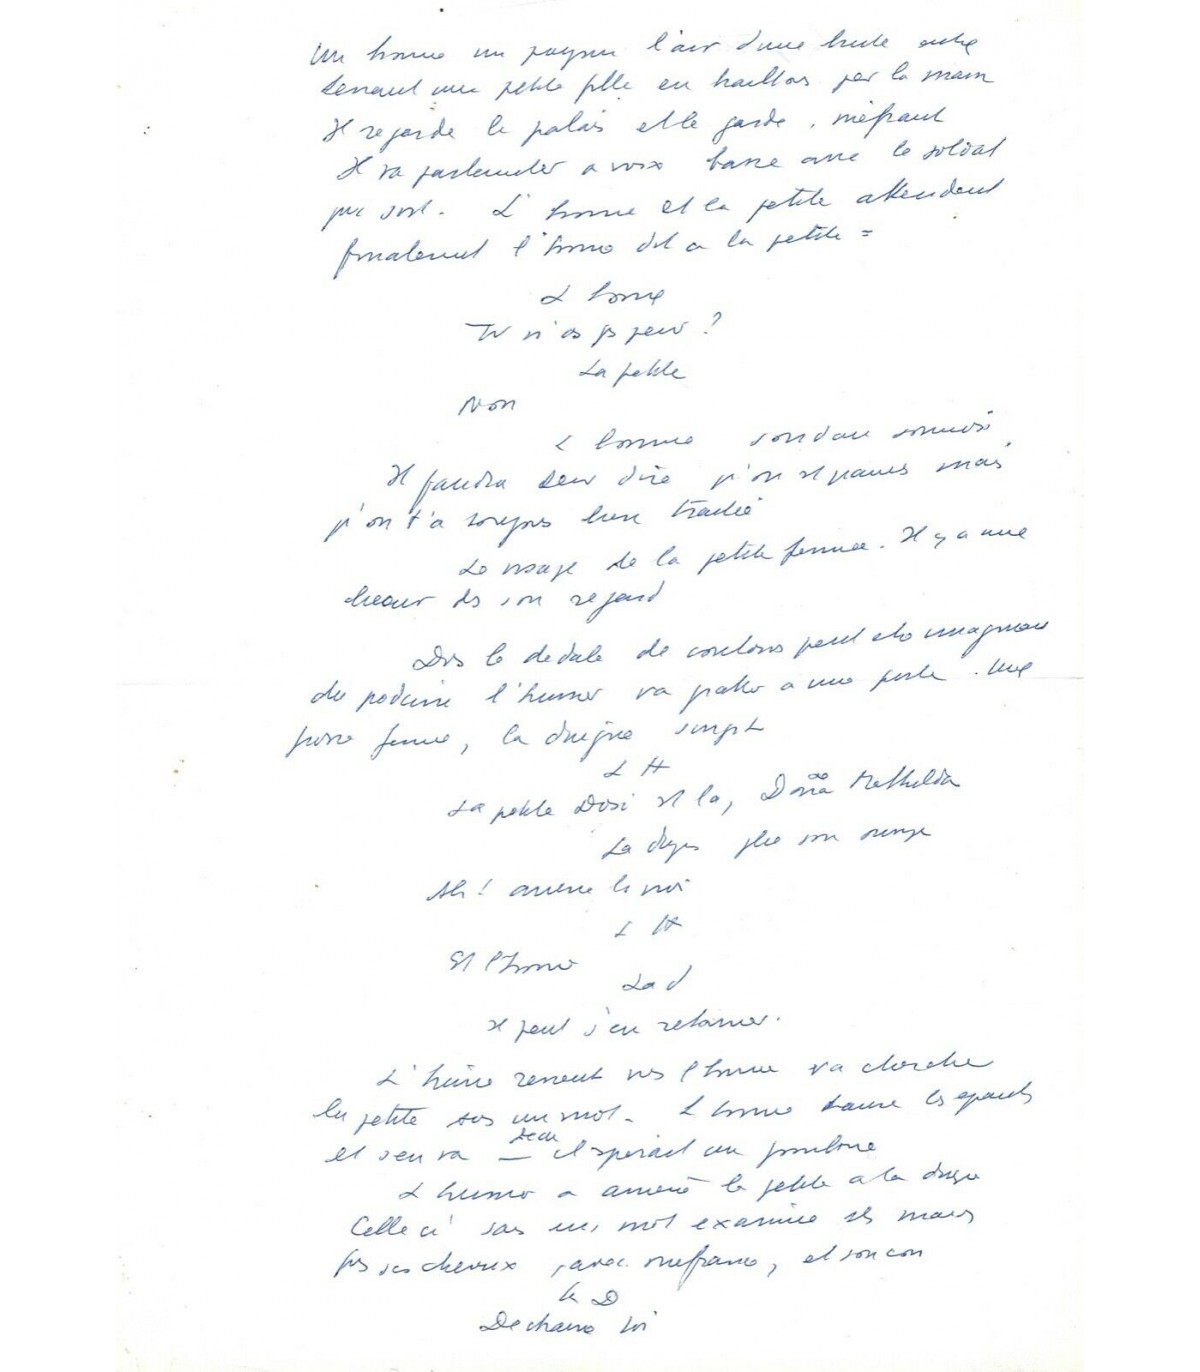 Un homme un paysan l'air d'une brute entre
tenant une petite fille en haillons par la main
Il regarde le palais et le garde, méfiant
Il va parlementer a voix basse avec le soldat
qui sort. L'homme et la petite attendent
finalement l'homme dit a la petite =
L'homme
Tu n'as ps peur ?
La petite
Non
L'homme soudain sournois
Il faudra leur dire qu'on st pauvres mais
qu'on t'a toujours bien traitée
Le visage de la petite fermée. Il y a une
lueur ds son regard
Ds le dedale de couloirs
l'huissier va gratter a une porte. Une
femme, la duègne surgit
L H
La petite Dosi st la, Doña Mathilda
La duègne
Ah ! amene la moi
L H
Et l'homme
La d
Il peut s'en retourner.
L'huissier revient vers l'homme va chercher
la petite sans un mot. L'homme hausse les epaules
et s'en va — decu il esperait un pourboire
L'huissier a amené la petite a la duègne
Celle ci sans un mot examine ses mains
ps ses cheveux, avec mefiance, et son cou
La D
Dechausse toi